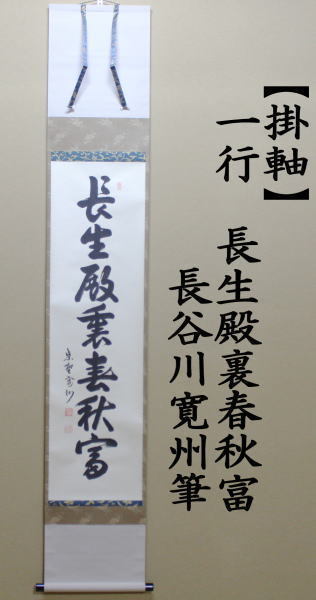 【掛軸】
一行 長生殿裏春秋富
長谷川寛州筆
長生殿裏春秋富